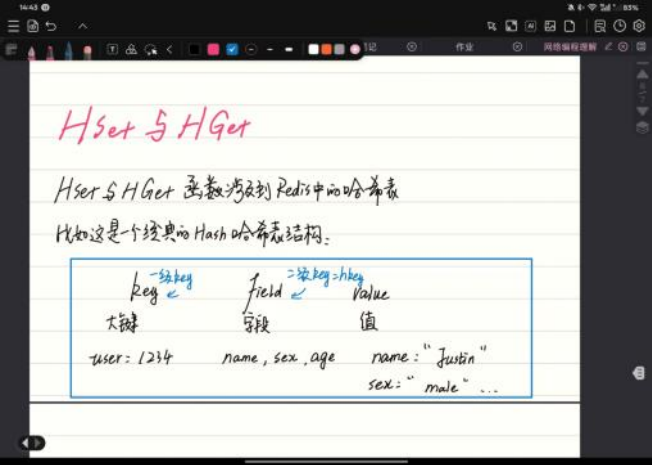 14:43
83%
笔记
作业
网络编程理解
HSet 与 HGet
HSet 与 HGet 函数涉及到 Redis中的哈希表
比如这是一个经典的 Hash 哈希表结构:
一级key
二级key=hkey
key field value
大键 字段 值
user: 1234 name, sex, age name: "Justin"
sex: "male" ...